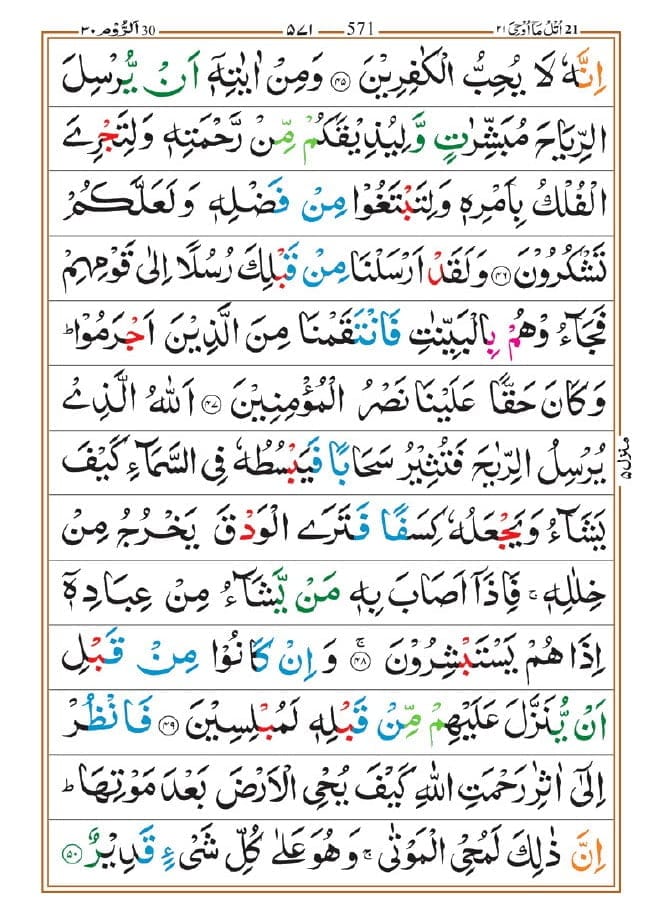 21 اُتْلُ مَآ اُوْحِیَ ۲۱ 571 ۵۷۱ 30 اَلرُّوْم ۳۰
اِنَّهٗ لَا یُحِبُّ الْكٰفِرِیْنَ ﴿۴۵﴾ وَمِنْ اٰیٰتِهٖۤ اَنْ یُّرْسِلَ
الرِّیَاحَ مُبَشِّرٰتٍ وَّلِیُذِیْقَكُمْ مِّنْ رَّحْمَتِهٖ وَلِتَجْرِیَ
الْفُلْكُ بِاَمْرِهٖ وَلِتَبْتَغُوْا مِنْ فَضْلِهٖ وَلَعَلَّكُمْ
تَشْكُرُوْنَ ﴿۴۶﴾ وَلَقَدْ اَرْسَلْنَا مِنْ قَبْلِكَ رُسُلًا اِلٰی قَوْمِهِمْ
فَجَآءُوْهُمْ بِالْبَیِّنٰتِ فَانْتَقَمْنَا مِنَ الَّذِیْنَ اَجْرَمُوْاؕ
وَكَانَ حَقًّا عَلَیْنَا نَصْرُ الْمُؤْمِنِیْنَ ﴿۴۷﴾ اَللّٰهُ الَّذِیْ
یُرْسِلُ الرِّیٰحَ فَتُثِیْرُ سَحَابًا فَیَبْسُطُهٗ فِی السَّمَآءِ كَیْفَ
یَشَآءُ وَیَجْعَلُهٗ كِسَفًا فَتَرَی الْوَدْقَ یَخْرُجُ مِنْ
خِلٰلِهٖۚ فَاِذَاۤ اَصَابَ بِهٖ مَنْ یَّشَآءُ مِنْ عِبَادِهٖۤ
اِذَا هُمْ یَسْتَبْشِرُوْنَ ﴿۴۸﴾ۚ وَاِنْ كَانُوْا مِنْ قَبْلِ
اَنْ یُّنَزَّلَ عَلَیْهِمْ مِّنْ قَبْلِهٖ لَمُبْلِسِیْنَ ﴿۴۹﴾ فَانْظُرْ
اِلٰۤی اٰثٰرِ رَحْمَتِ اللّٰهِ كَیْفَ یُحْیِ الْاَرْضَ بَعْدَ مَوْتِهَاؕ
اِنَّ ذٰلِكَ لَمُحْیِ الْمَوْتٰیۚ وَهُوَ عَلٰی كُلِّ شَیْءٍ قَدِیْرٌ ﴿۵۰﴾
منزل ۵